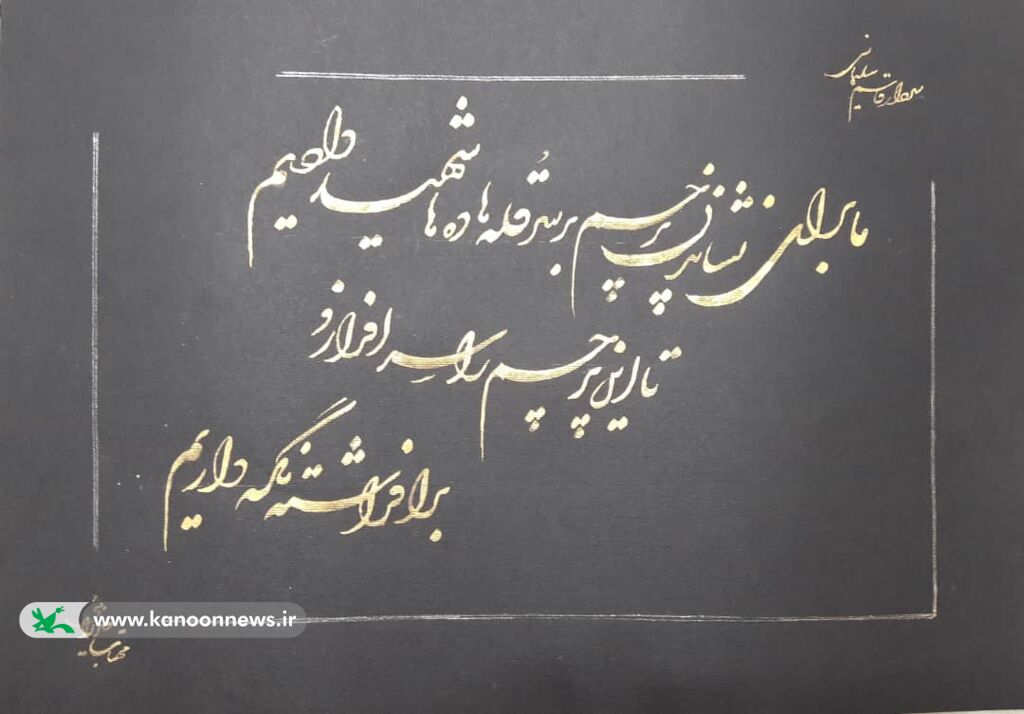 سردار قاسم سلیمانی
ما برای نشاندن پرچم بر سر قله ها ده ها شهید دادیم
تا این پرچم را سرافراز و
برافراشته نگه داریم
www.kanoonnews.ir